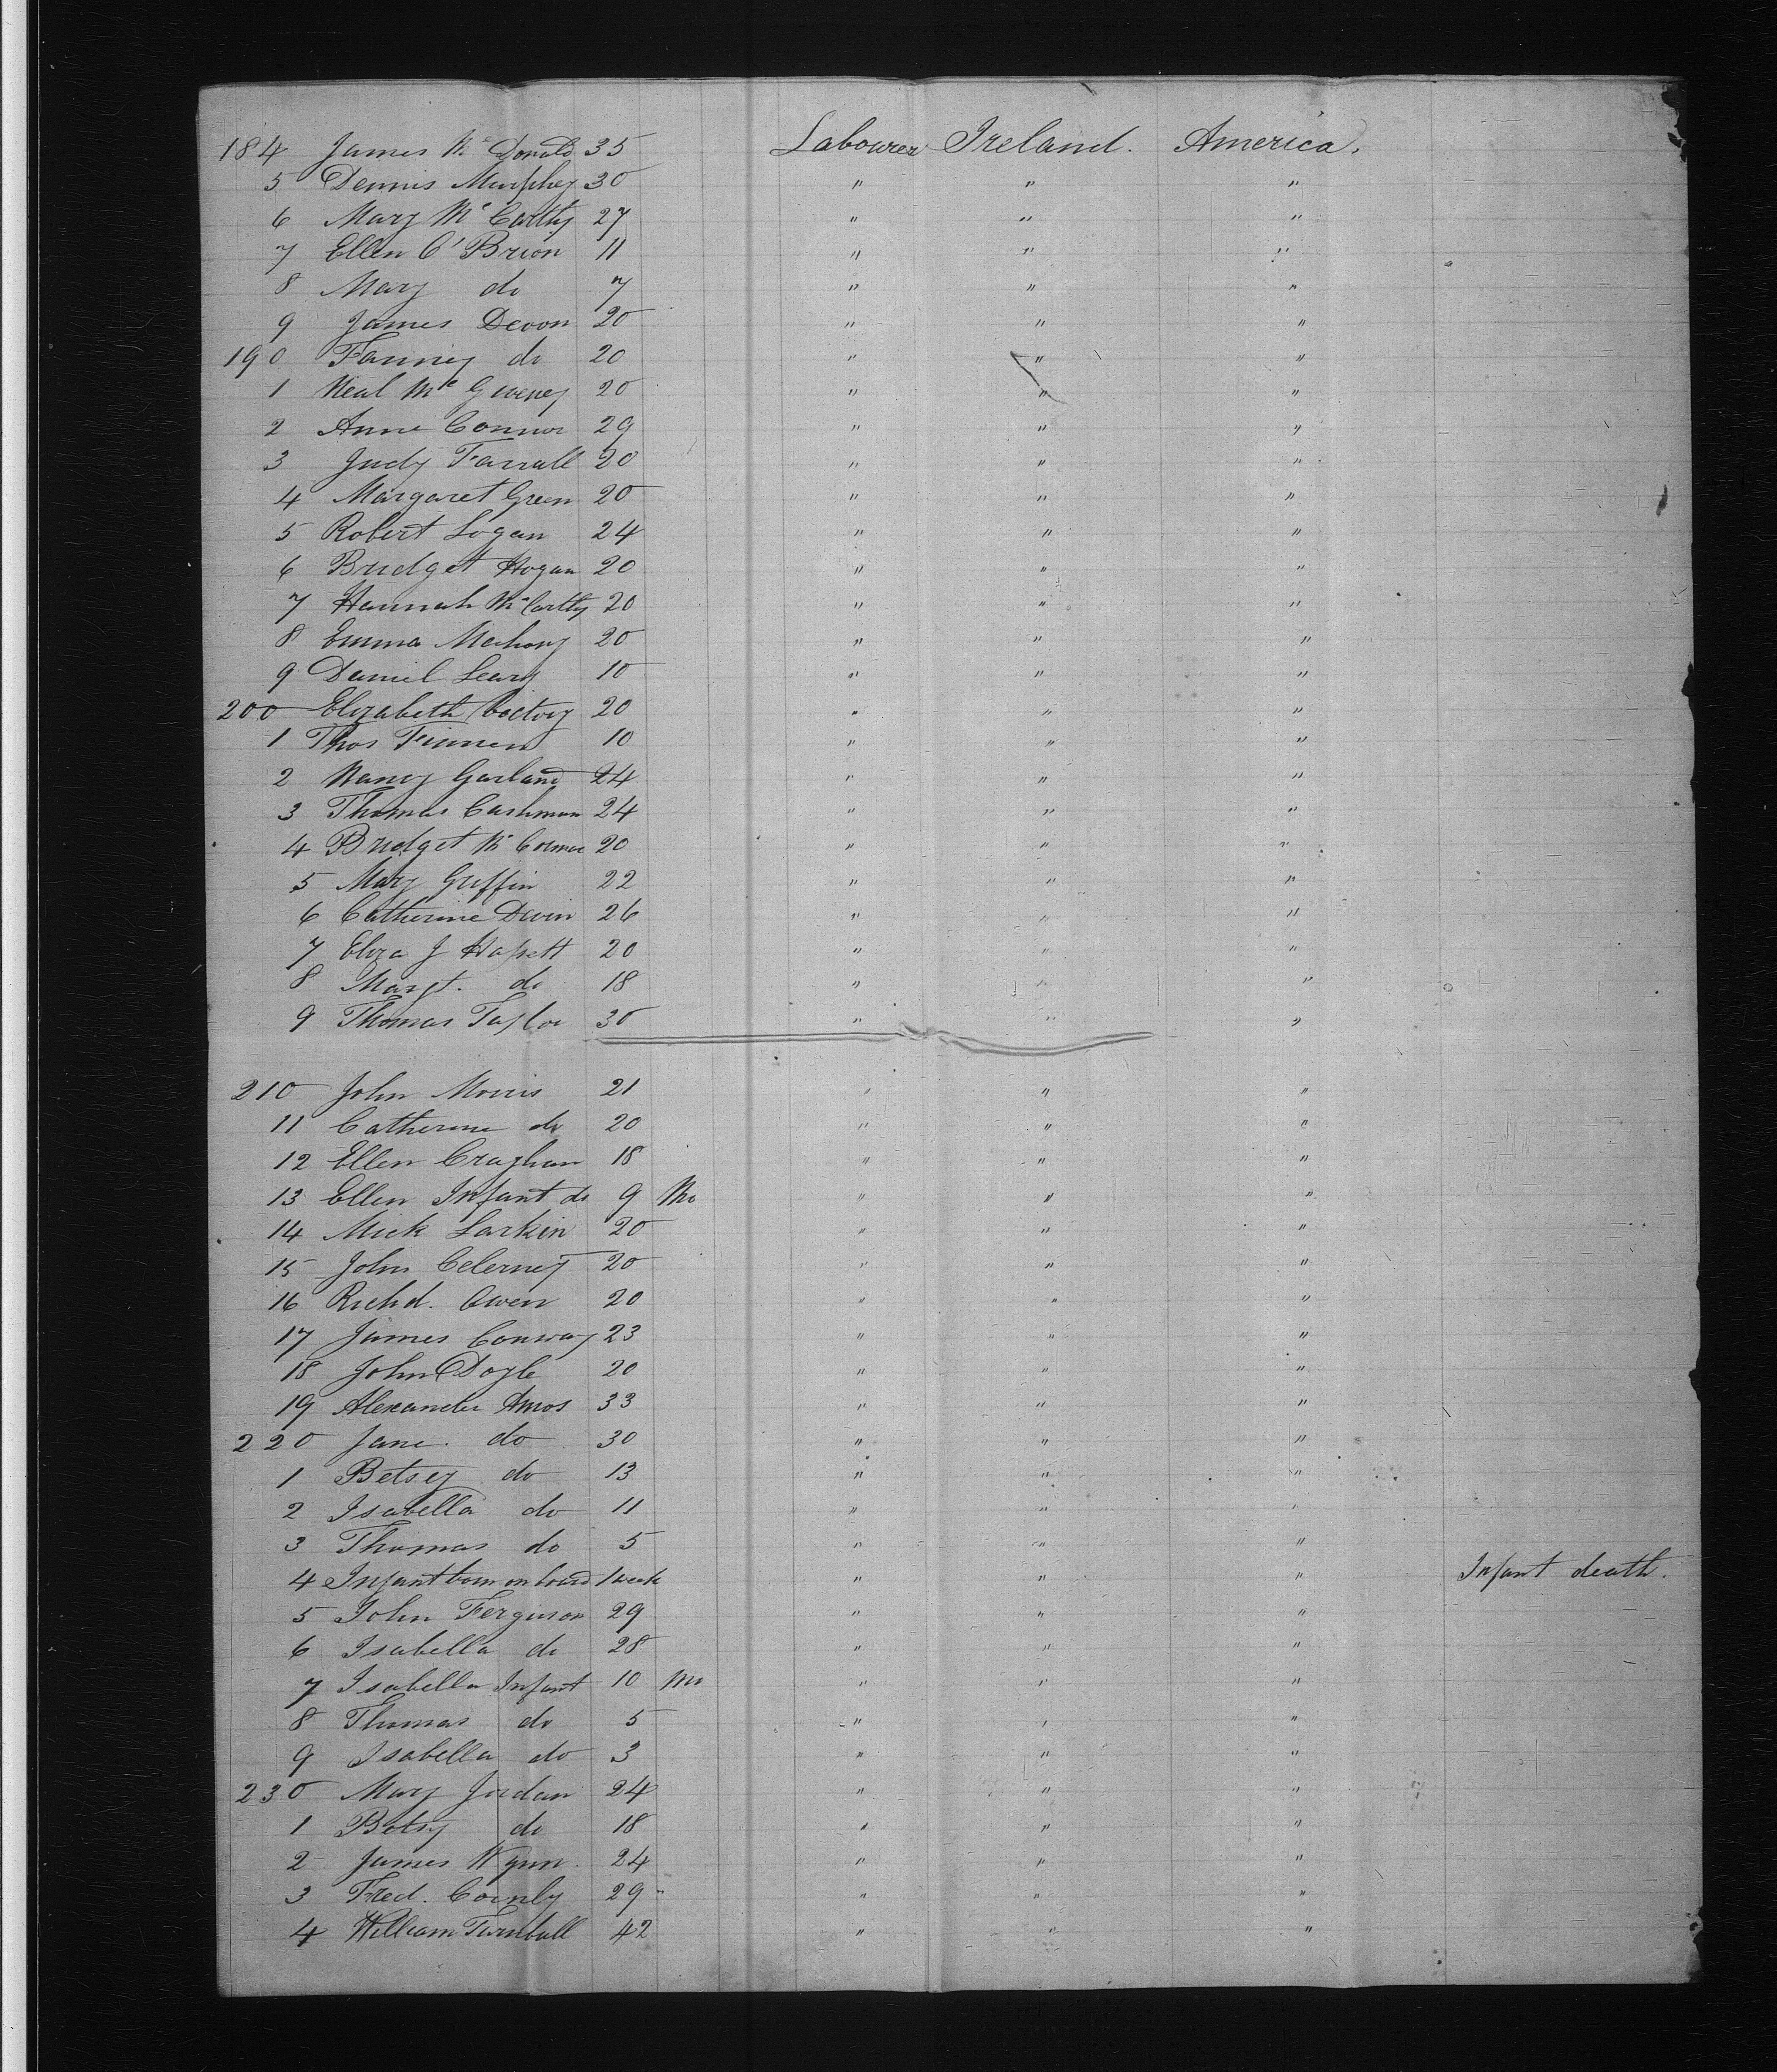 184 James Mc Donald 35 Labourer Ireland. America.
5 Dennis Murphey 30 " " "
6 Mary Mc Carthy 27 " " "
7 Ellen O'Brion 11 " " "
8 Mary do 7 " " "
9 James Devon 20 " " "
190 Fanney do 20 " " "
1 Neal Mc 20 " " "
2 Anne Connor 29 " " "
3 Judy Farrall 20 " " "
4 Margaret Green 20 " " "
5 Robert Logan 24 " " "
6 Bridget Hogan 20 " " "
7 Hannah McCarthy 20 " " "
8 Emma Mahony 20 " " "
9 Daniel Leary 10 " " "
200 Elizabeth 20 " " "
1 Thos Finnen 10 " " "
2 Nancy Garland 24 " " "
3 Thomas Cashman 24 " " "
4 Bridget Mc 20 " " "
5 Mary Griffin 22 " " "
6 Catherine Devin 26 " " "
7 Eliza J Hassett 20 " " "
8 Margt. do 18 " " "
9 Thomas Taylor 30 " " "
210 John Morris 21 " " "
11 Catherine do 20 " " "
12 Ellen Craghan 18 " " "
13 Ellen Infant do 9 Mo " " "
14 Mick Larkin 20 " " "
15 John Celerney 20 " " "
16 Richd. Owen 20 " " "
17 James Conway 23 " " "
18 John Doyle 20 " " "
19 Alexander Amos 33 " " "
220 Jane. do 30 " " "
1 Betsey do 13 " " "
2 Isabella do 11 " " "
3 Thomas do 5 " " "
4 Infant born on board 1 week " " " Infant death.
5 John Ferguson 29 " " "
6 Isabella do 28 " " "
7 Isabella Infant 10 Mo " " "
8 Thomas do 5 " " "
9 Isabella do 3 " " "
230 Mary Jordan 24 " " "
1 Betsy do 18 " " "
2 James Wynn. 24 " " "
3 Fred. 29 " " "
4 William Turnbull 42 " " "